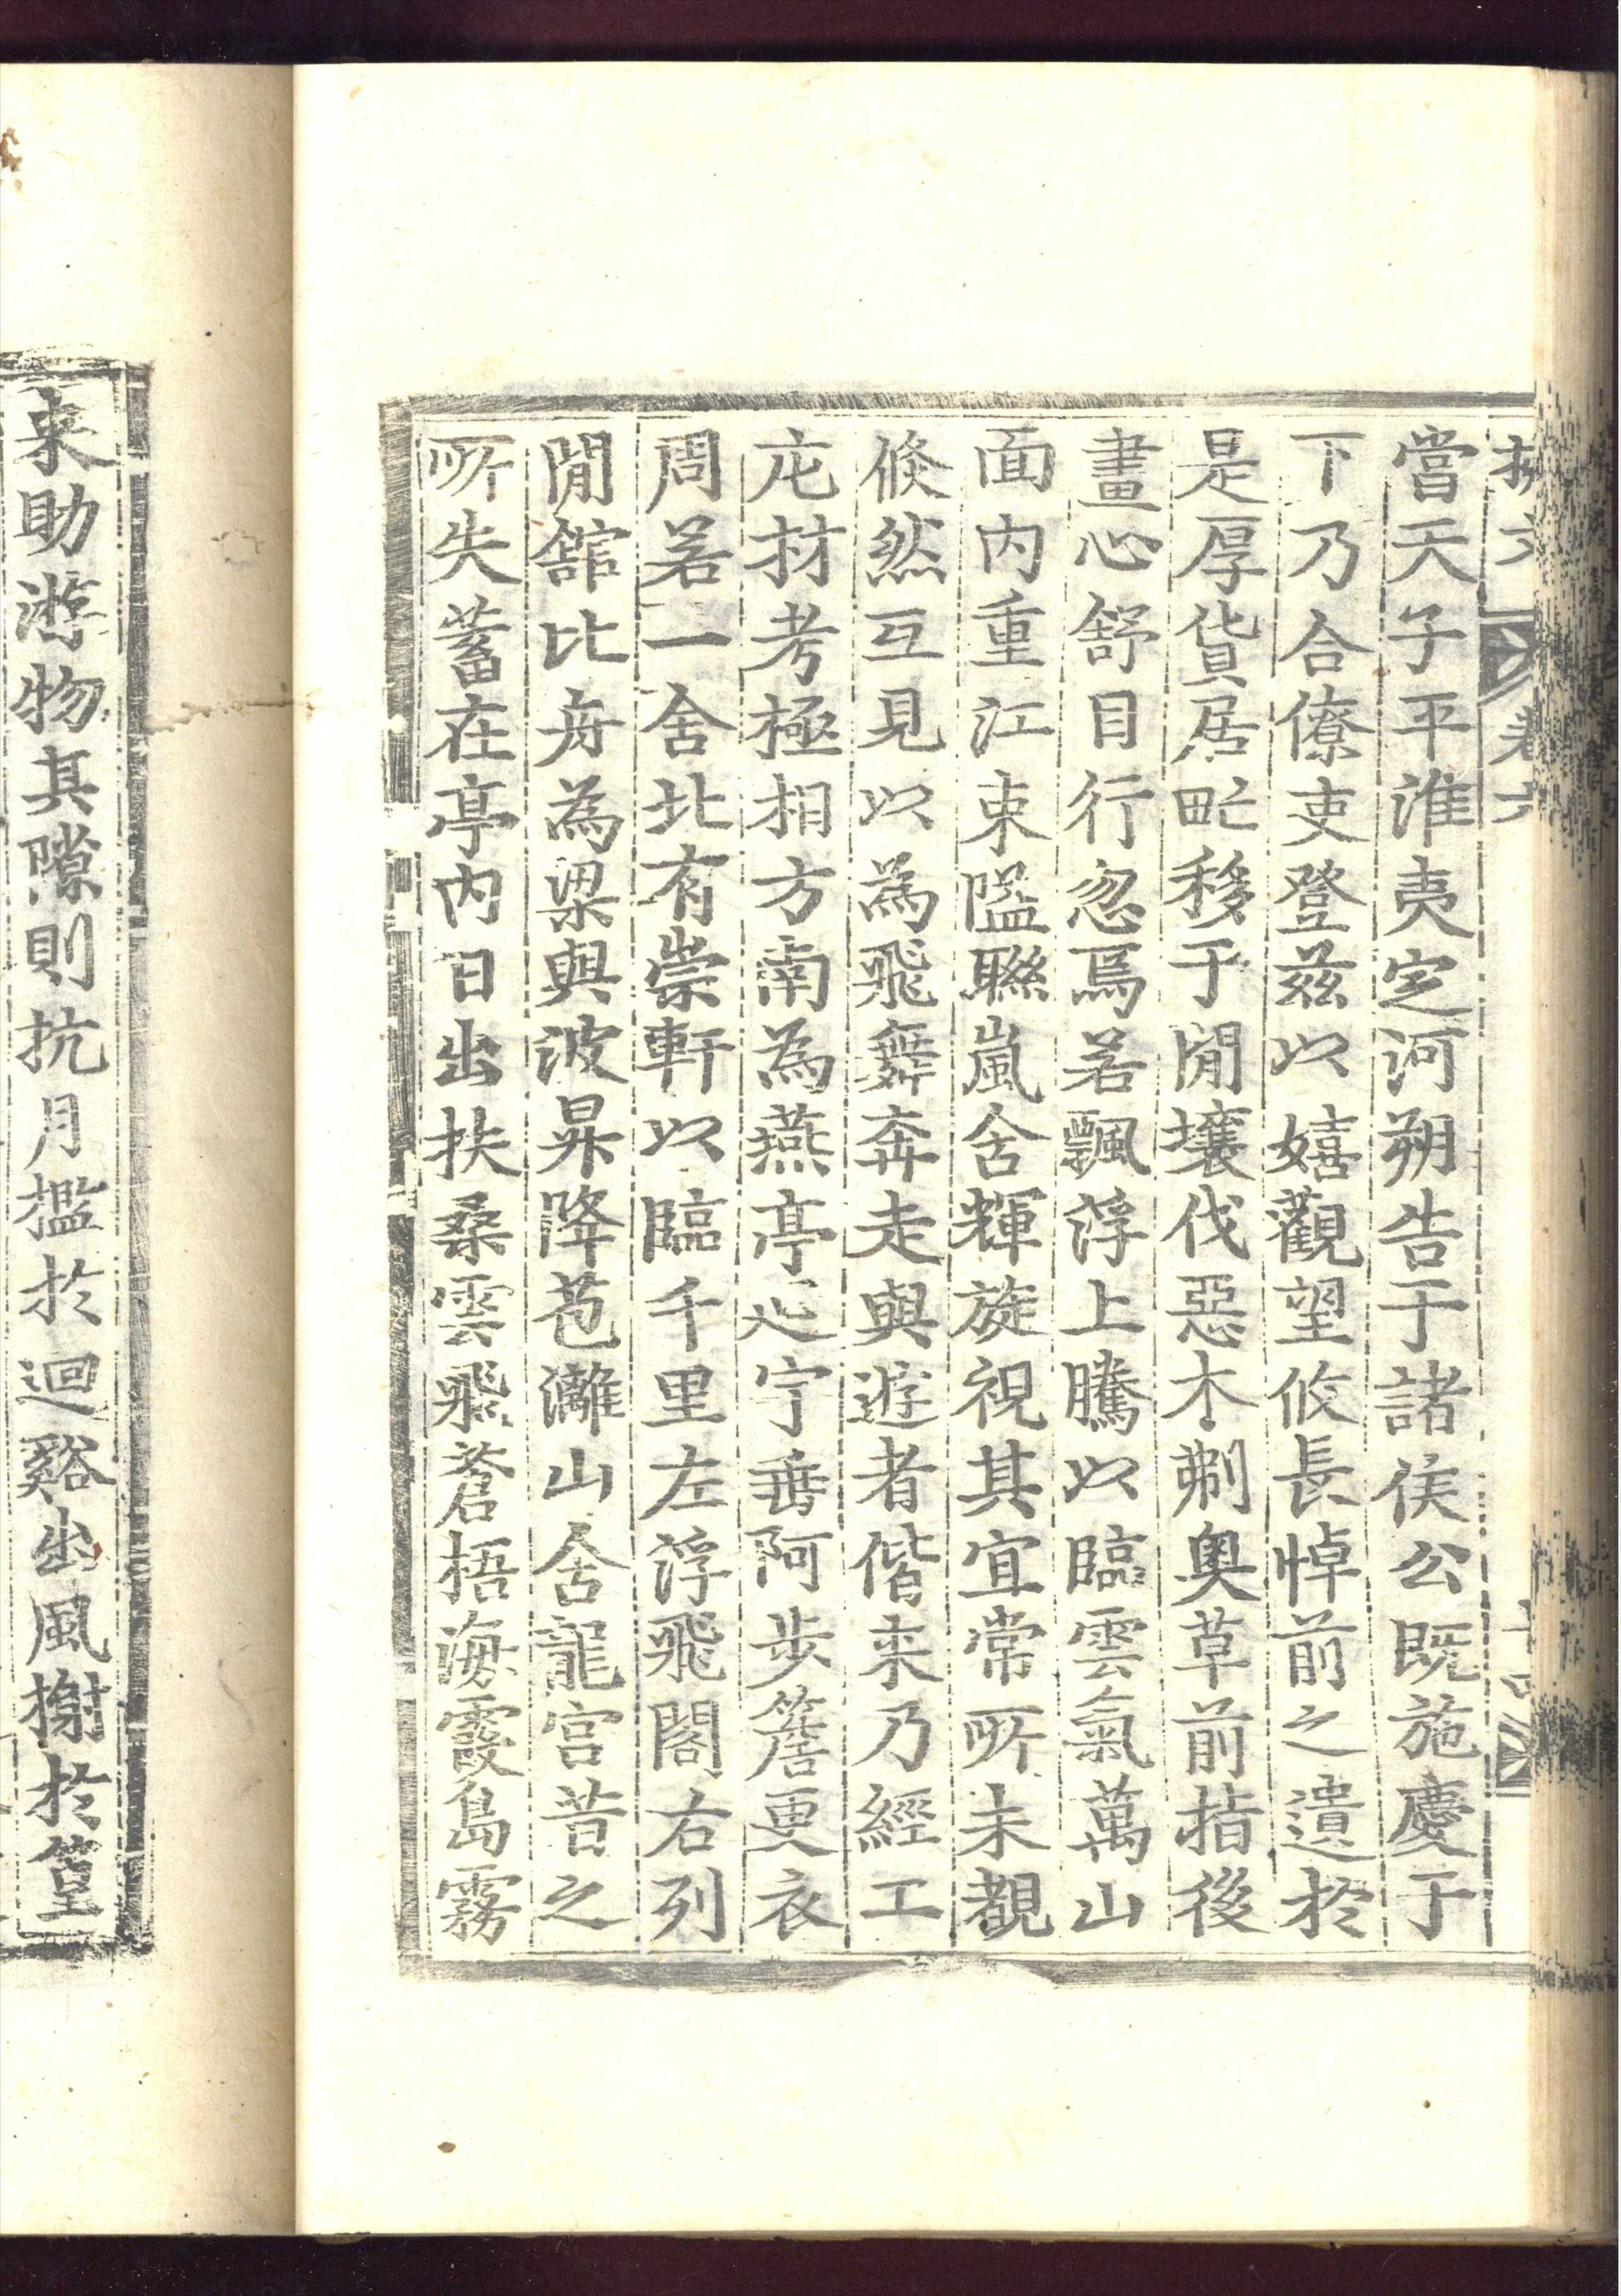 當天子平淮夷定河朔告于諸侯公既施慶于
下乃合僚吏登茲以嬉觀望攸長悼前之遺於
是厚貨居甿移于閒壤伐惡木剃奧草前指後
畫心舒目行忽焉若飄浮上騰以臨雲氣萬山
面內重江束隘聯嵐含輝旋視其宜常所未覩
倏然互見以為飛舞奔走與遊者偕来乃經工
庀材考極相方南為燕亭延宇垂阿步簷更衣
周若一舍北有崇軒以臨千里左浮飛閣右列
閒舘比舟為梁與波昇降苞灕山含龍宮昔之
所失蓄在亭內日出扶桑雲飛蒼梧海霞島霧
来助游物其隙則抗月檻於迴谿出風榭於篁